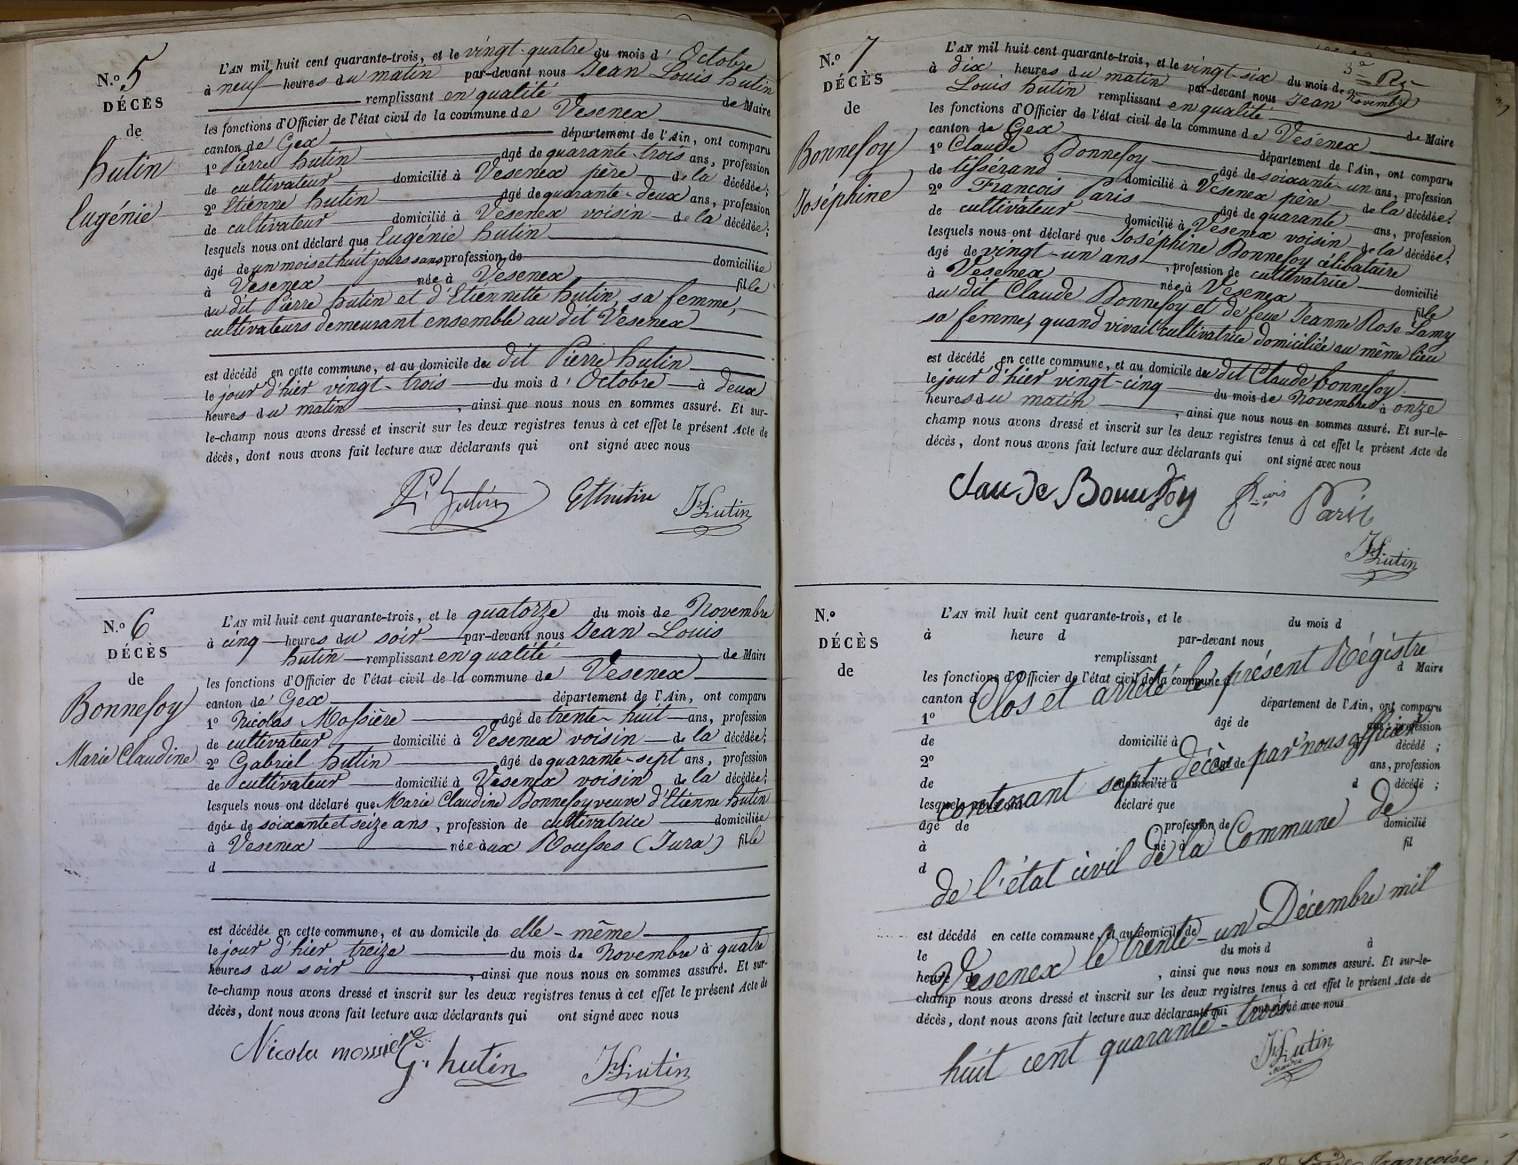 N.º 5
DÉCÈS
de
hutin
Eugénie
L'AN mil huit cent quarante-trois, et le vingt-quatre du mois d'Octobre
à neuf heures du matin par-devant nous Jean Louis hutin
remplissant en qualité de Maire
les fonctions d'Officier de l'état civil de la commune de Vesenex
canton de Gex département de l'Ain, ont comparu
1º Pierre hutin âgé de quarante trois ans, profession
de cultivateur domicilié à Vesenex père de la décédée;
2º Etienne hutin âgé de quarante-deux ans, profession
de cultivateur domicilié à Vesenex voisin de la décédée;
lesquels nous ont déclaré que Eugénie hutin
âgé de un mois et huit jours sans profession, de domiciliée
à Vesenex née à Vesenex fille
du dit Pierre hutin et d'Etiennette hutin, sa femme,
cultivateurs demeurant ensemble au dit Vesenex
est décédé en cette commune, et au domicile du dit Pierre hutin
le jour d'hier vingt-trois du mois d'Octobre à deux
heures du matin, ainsi que nous nous en sommes assuré. Et sur-
le-champ nous avons dressé et inscrit sur les deux registres tenus à cet effet le présent Acte de
décès, dont nous avons fait lecture aux déclarants qui ont signé avec nous
P. hutin Et hutin JL hutin
N.º 6
DÉCÈS
de
Bonnefoy
Marie Claudine
L'AN mil huit cent quarante-trois, et le quatorze du mois de Novembre
à cinq heures du soir par-devant nous Jean Louis
hutin remplissant en qualité de Maire
les fonctions d'Officier de l'état civil de la commune de Vesenex
canton de Gex département de l'Ain, ont comparu
1º Nicolas Mossière âgé de trente-huit ans, profession
de cultivateur domicilié à Vesenex voisin de la décédée;
2º Gabriel hutin âgé de quarante-sept ans, profession
de cultivateur domicilié à Vesenex voisin de la décédée;
lesquels nous ont déclaré que Marie Claudine Bonnefoy veuve d'Etienne hutin
âgée de soixante et seize ans, profession de cultivatrice domiciliée
à Vesenex née aux Rousses (Jura) fille
d
est décédée en cette commune, et au domicile de elle-même
le jour d'hier treize du mois de Novembre à quatre
heures du soir, ainsi que nous nous en sommes assuré. Et sur-
le-champ nous avons dressé et inscrit sur les deux registres tenus à cet effet le présent Acte de
décès, dont nous avons fait lecture aux déclarants qui ont signé avec nous
Nicolas mossiere G. hutin JL hutin
N.º 7
DÉCÈS
de
Bonnefoy
Joséphine
L'AN mil huit cent quarante-trois, et le vingt-six du mois de Novembre
à dix heures du matin par-devant nous Jean
Louis hutin remplissant en qualité de Maire
les fonctions d'Officier de l'état civil de la commune de Vesenex
canton de Gex département de l'Ain, ont comparu
1º Claude Bonnefoy âgé de soixante-un ans, profession
de tisserand domicilié à Vesenex père de la décédée;
2º François Paris âgé de quarante ans, profession
de cultivateur domicilié à Vesenex voisin de la décédée;
lesquels nous ont déclaré que Joséphine Bonnefoy célibataire
âgé de vingt-un ans, profession de cultivatrice domicilié
à Vesenex née à Vesenex fille
du dit Claude Bonnefoy et de feue Jeanne Rose Lamy
sa femme, quand vivait cultivatrice domiciliée au même lieu
est décédé en cette commune, et au domicile du dit Claude bonnefoy
le jour d'hier vingt-cinq du mois de Novembre à onze
heures du matin, ainsi que nous nous en sommes assuré. Et sur-le-
champ nous avons dressé et inscrit sur les deux registres tenus à cet effet le présent Acte de
décès, dont nous avons fait lecture aux déclarants qui ont signé avec nous
Claude Bonnefoy Paris
JL hutin
N.º
DÉCÈS
de
L'AN mil huit cent quarante-trois, et le du mois d
à heure d par-devant nous
remplissant d Maire
les fonctions d'Officier de l'état civil de la commune d
canton d département de l'Ain, ont comparu
1º âgé de ans, profession
de domicilié à décédé;
2º âgé de ans, profession
de domicilié à d décédé;
lesquels nous ont déclaré que
âgé de profession de domicilié
à né à fil
d
est décédé en cette commune, et au domicile de
le du mois d à
heure d, ainsi que nous nous en sommes assuré. Et sur-le-
champ nous avons dressé et inscrit sur les deux registres tenus à cet effet le présent Acte de
décès, dont nous avons fait lecture aux déclarants qui ont signé avec nous
Clos et arrêté le présent Régistre
contenant sept décès par nous officier
de l'état civil de la Commune de
Vesenex le trente-un Décembre mil
huit cent quarante-trois
JL hutin